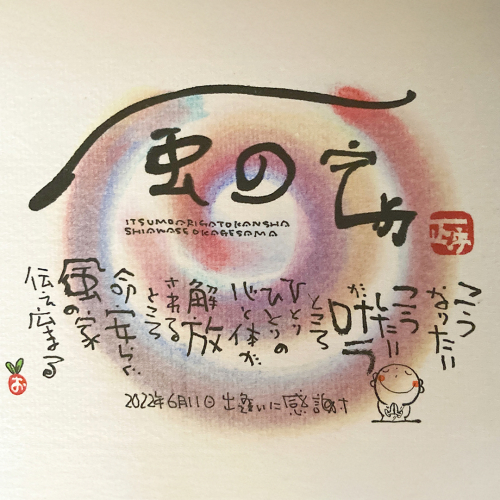 風の家
ITSUMOARIGATOKANSHA
SHIAWASEOKAGESAMA
こう
なりたい
こう
したい
が
叶う
ところ
ひとり
ひとりの
心と体が
解放
される
ところ
命安らぐ
風の家
伝え広まる
お
2022年6月11日 出逢いに感謝